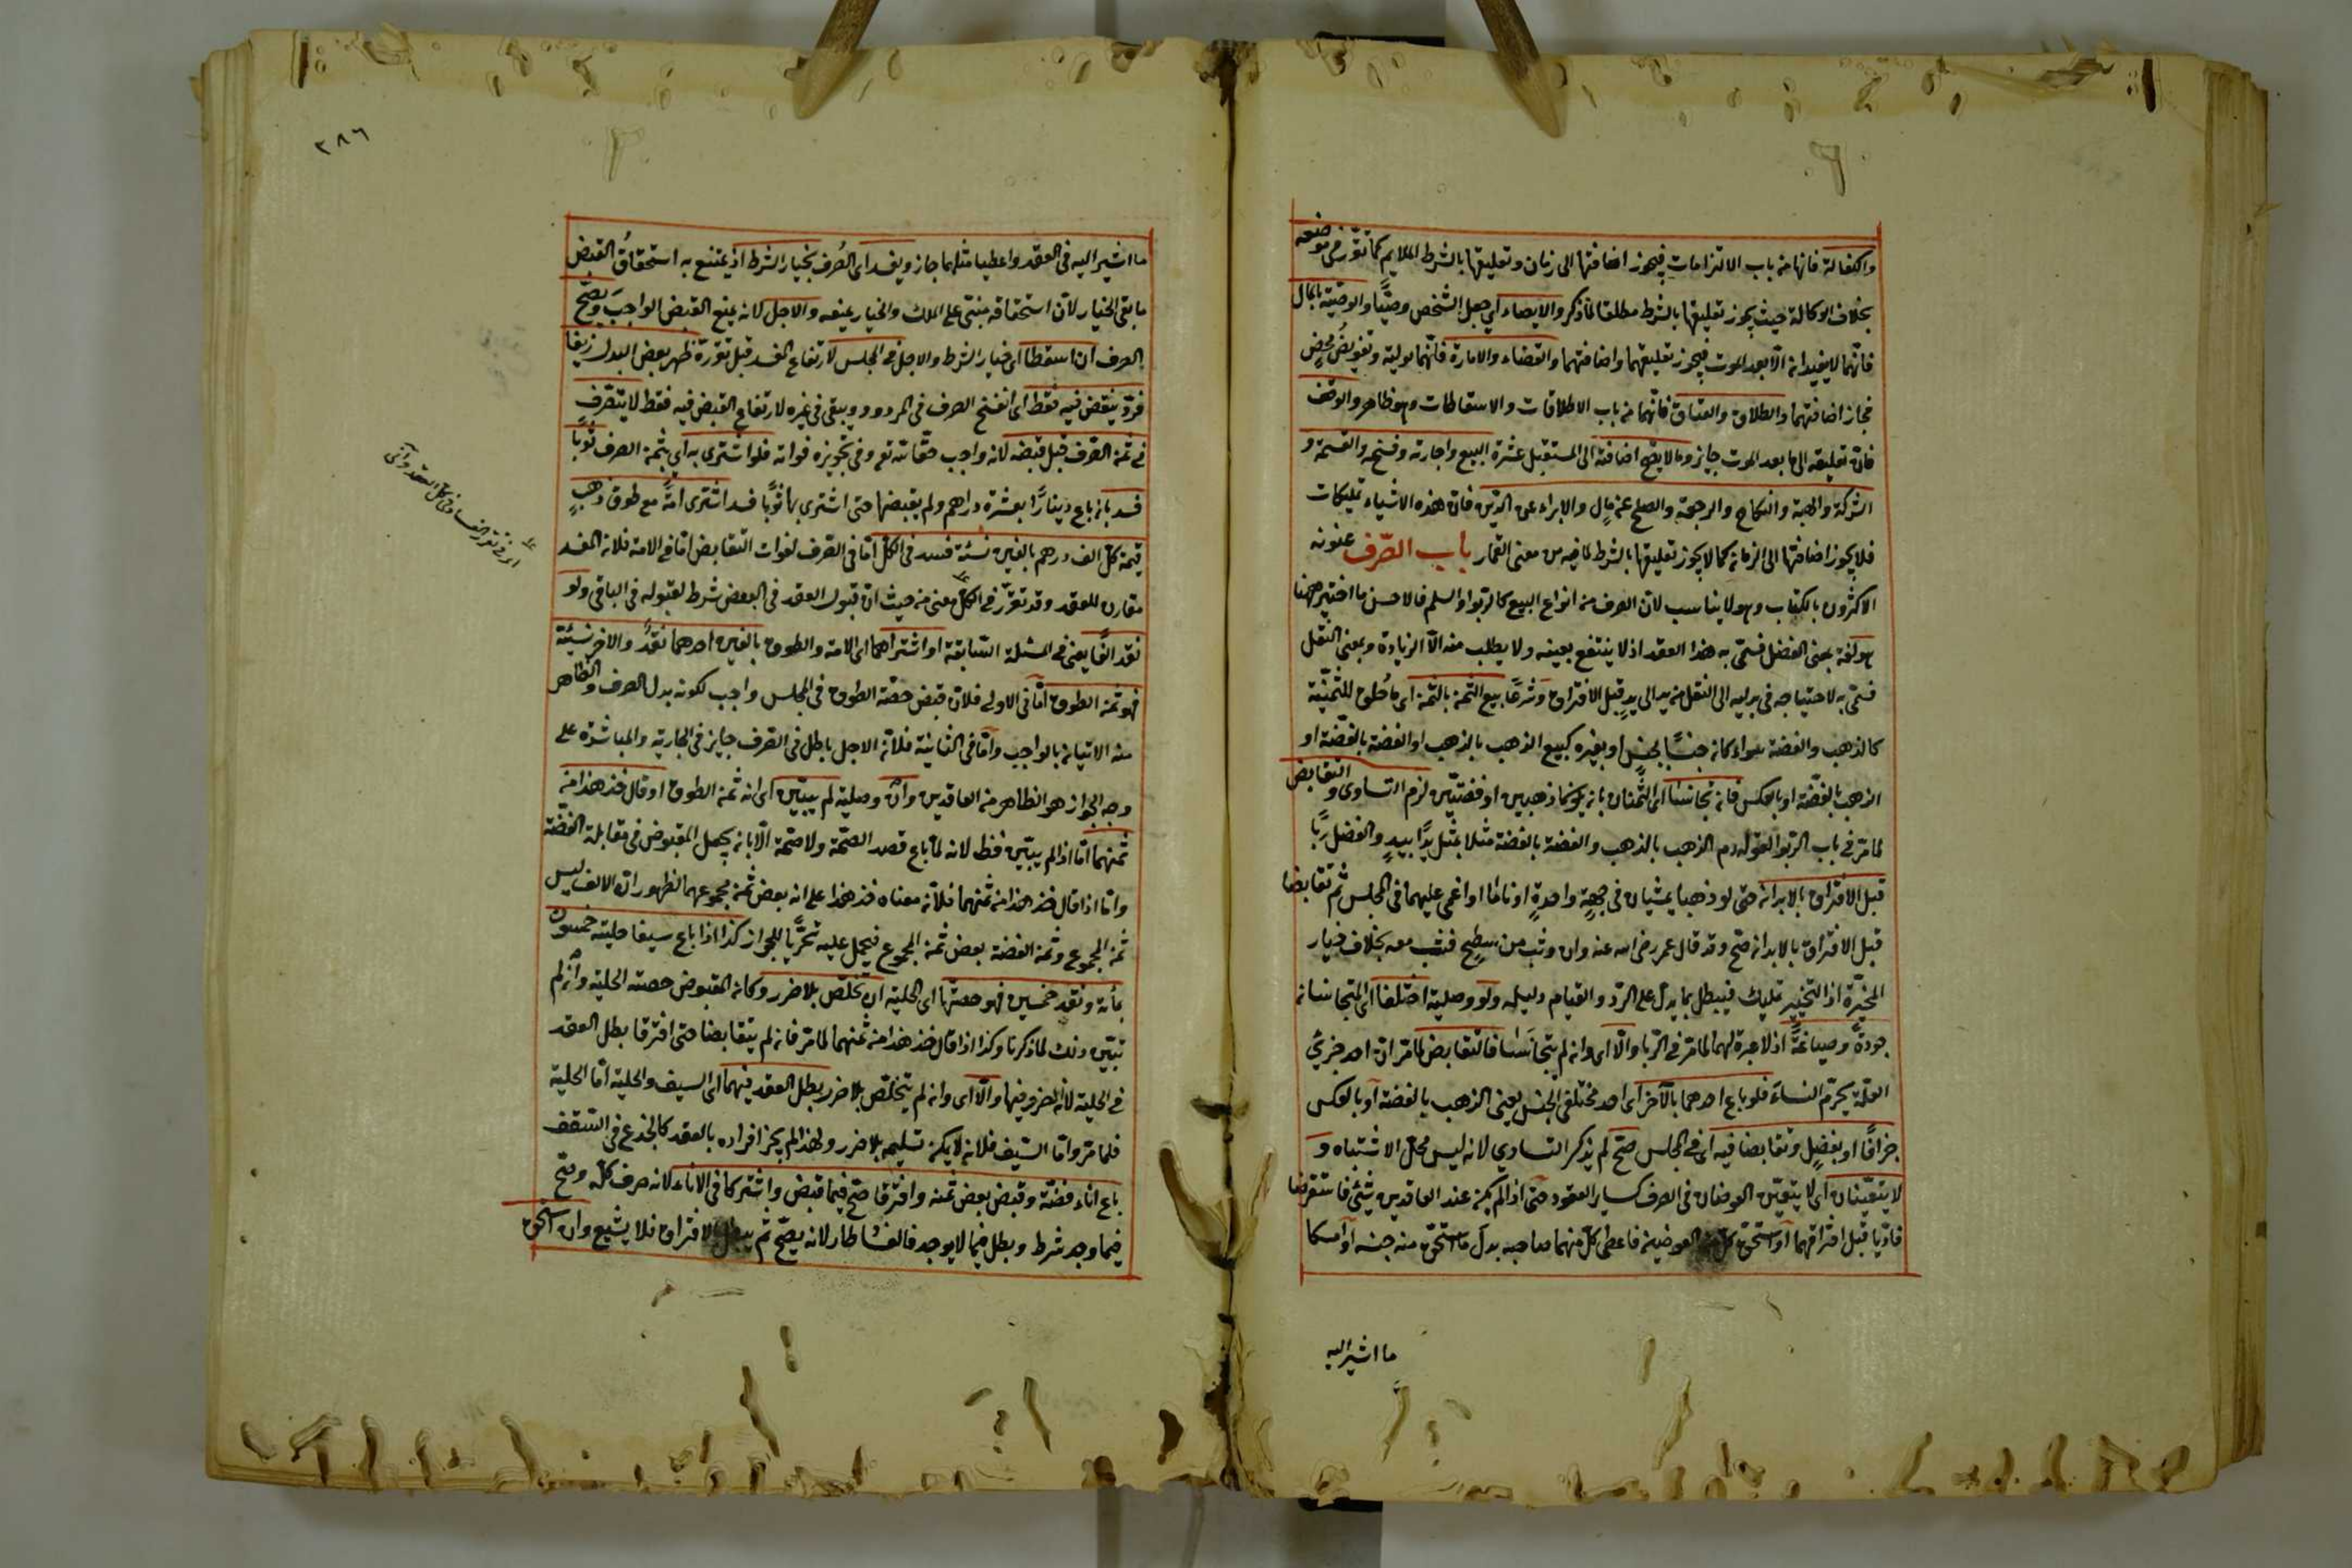 والكفالة فانها من باب الالتزامات فيجوز اضافتها الى زمان وتعليقها بالشرط الملايم كما تقرر في موضعه
بخلاف الوكالة حيث يجوز تعليقها بالشرط مطلقا لما ذكر والايصاء اي جعل الشخص وصيًّا والوصية بالمال
فانّهما لا يفيدان الّا بعد الموت فيجوز تعليقهما واضافتهما والقضاء والامارة فانّهما تولية وتفويضٌ محضٍ
فجاز اضافتهما والطلاق والعتاق فانّهما من باب الاطلاقات والاسقاطات وهو ظاهر والوقف
فانّ تعليقه الى ما بعد الموت جايز وما لا يصحّ اضافته الى المستقبل عشرة البيع واجارته وفسخه والقسمة و
الشركة والهبة والنكاح والرجعة والصلح عن مالٍ والابراء عن الدّين فانّ هذه الاشياء تمليكات
فلا يجوز اضافتها الى الزمان كما لا يجوز تعليقها بالشرط لما فيه من معنى القمار باب الصّرف عنونه
الاكثرون بالكتاب وهو لا يناسب لانّ الصرف من انواع البيع كالربوا والسلم فالاحسن ما اختير ههنا
هو لغة بمعنى الفضل فسمّى به هذا العقد اذ لا ينتفع بعينه ولا يطلب منه الّا الزيادة وبمعنى النقل
فسمّى به لاحتياجه في بدليه الى النقل من يد الى يدٍ قبل الافتراق وشرعًا بيع الثمن بالثمن اي ما خُلق للثمنيّة
كالذهب والفضة سواء كان جنسًا بجنسٍ او بغيره كبيع الذهب بالذهب او الفضة بالفضّة او
الذهب بالفضّة او بالعكس فان تجانسا اي الثّمنان بان يكونا ذهبين او فضتيّن لزم التساوى والتقابض
لما مرّ في باب الربوا لقوله عم الذهب بالذهب والفضة بالفضة مثلا بمثل يدًا بيدٍ والفضل ربًا
قبل الافتراق بالابدان حتى لو ذهبا يمشيان في جهةٍ واحدةٍ او ناما او اغمى عليهما في المجلس ثم تقابضا
قبل الافتراق بالابدان صحّ وقد قال عمر رضى الله عنه وان وثب من سطحٍ فثب معه بخلاف خيار
المخيّرة اذ التخيير تمليك فيبطل بما يدلّ على الردّ والقيام دليله ولو وصلية اختلفا اي المتجانسان
جودةً وصياغةً اذ لا عبرة لهما لما مرّ في الرّبا والّا اى وان لم يتجانَسَا فالتقابض لما مرّ انّ احد جزئي
العلّة يحرّم النساءَ فلو باع احدهما بالآخر اى احد مختلفى الجنس يعنى الذهب بالفضة أو بالعكس
جزافًا او بفضلٍ وتقابضا فيه اي في المجلس صحّ لم يذكر التساوي لانه ليس محلّ الاشتباه و
لا يتعيّنان اي لا يتعيّن العوضان في الصرف كساير العقود حتى اذا لم يكن عند العاقدين شيٌ فاستقرضا
فادّيا قبل افتراقهما أو استحق كلّ من العوضين فاعطى كلّ منهما صاحبه بدلَ ما استحق منه جنسه أو أمسكا
ما اشير اليه
٢٨٦
ما اشير اليه في العقد واعطيا مثلهما جاز ويفسد اى الصُرف بخيار الشرط اذ يمتنع به استحقاقُ القبض
ما بقى الخيار لانّ استحقاقه مبنىّ على الملك والخيار يمنعه والاجل لانه يمنع القبض الواجبَ ويصحّ
الصرف ان اسقطا اى خيار الشرط والاجل في المجلس لارتفاع المفسد قبل تقرّره ظهر بعض البدل زيفا
فردّ ينقض فيه فقط اى انفسخ الصرف في المردود ويبقى في غيره لارتفاع القبض فيه فقط لا يتصّرف
في ثمن الصّرف قبل قبضه لانه واجب حقّا لله تع وفي تجويزه فواته فلو اشترى به اي بثمن الصرف ثوبًا
فسد بان باع دينارًا بعشرة دراهم ولم يقبضها حتى اشترى بها ثوبًا فسد اشترى امةً مع طوق ذهبٍ
قيمة كلّ الف درهم بالفين نسئة فسد في الكلّ أمّا في الصّرف لفوات التقابض امّا في الامة فلانّ المفسد
مقارن للعقد وقد تقرّر في الكلّ معنى من حيث انّ قبول العقد في البعض شرط لقبوله في الباقي ولو
نقد الفًا يعنى في المسئلة السّابقة او اشتراهما اى الامة والطوق بالفين احدهما نقدٌ والاخر نسئة
فهو ثمن الطوق أمّا في الاولى فلانّ قبض حصّة الطوق في المجلس واجب لكونه بدل الصرف والظاهر
منه الاتيان بالواجب وأمّا في الثانية فلانّ الاجل باطل في الصّرف جايز في الجارية والمباشرة على
وجه الجواز هو الظاهر من العاقدين وانْ وصلية لم يبيّن اى انه ثمن الطوق او قال خذ هذا من
ثمنهما امّا اذا لم يبيّن فظ لانه لمّا باع قصد الصحّة ولا صحّة الّا بان يجعل المقبوض في مقابلة الفضّة
وامّا اذا قال خذ هذا من ثمنهما فلانّ معناه خذ هذا على انه بعض ثمن مجموعهما لظهور انّ الالف ليس
ثمن المجموع وثمن الفضة بعض ثمن المجموع فيحمل عليه تحرّيًا للجواز كذا اذا باع سيفا حليته خمسون
بمأة ونقد خمسين فهو حصتها اى الحلية ان تخلّص بلا ضرر وكان المقبوض حصته الحلية وأن لم
تبيّن ذلك لما ذكرنا وكذا اذا قال خذ هذا من ثمنهما لما مرّ فان لم يتقابضا حتى افترقا بطل العقد
في الحلية لانه الصرف فيها والّا اى وان لم يتخلّص بلا ضرر بطل العقد فيهما اى السيف والحلية امّا الحلية
فلما مرّ وامّا السّيف فلانّه لا يمكن تسليمه بلا ضرر ولهذا لم يجز افراده بالعقد كالجذع في السّقف
باع اناء فضّة وقبض بعض ثمنه وافترقا صحّ فيما قبض واشتركا في الاناء لانه صرف كلّه وصحّ
فيما وجد شرط وبطل فيما لا يوجد فالفسا طار لانه يصحّ ثم يبطل بالافتراق فلا يشيع وان استحق